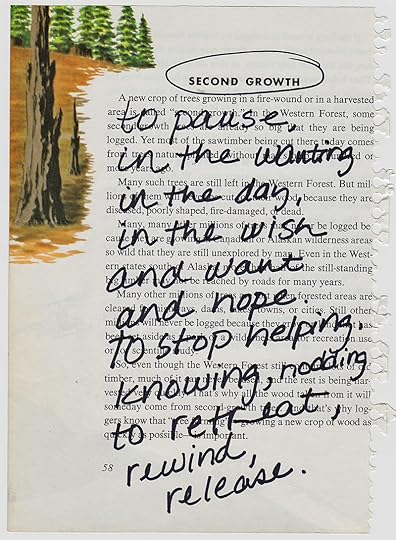 SECOND GROWTH
to pause,
in the wanting
in the day,
in the wish
and want
and nope.
to stop helping,
knowing, nodding
to retreat,
rewind,
release.
A new crop of trees growing in a fire-wound or in a harvested
area is called "second growth." In the Western Forest, some
second growth so big that they are being
logged. Yet most of the sawtimber being cut there today comes
from or
more years ago.
Many such trees are still left in Western Forest. But mil-
wood because they are
diseased, poorly shaped, fire-damaged, or dead.
Many, many be logged be-
or Alaskan wilderness areas
so wild that they are still unexplored by man. Even in the West-
ern states south of Alaska the still-standing
reached by roads for many years.
Many other millions of forested areas are
towns, or cities. Still other
will never be logged because they
recreation use
or for scientific study.
So, even though the Western Forest still
timber, much of and the rest is being har-
That's why all the wood
someday come from second growth why log-
gers know that growing a new crop of wood as
quickly as possible important.
58